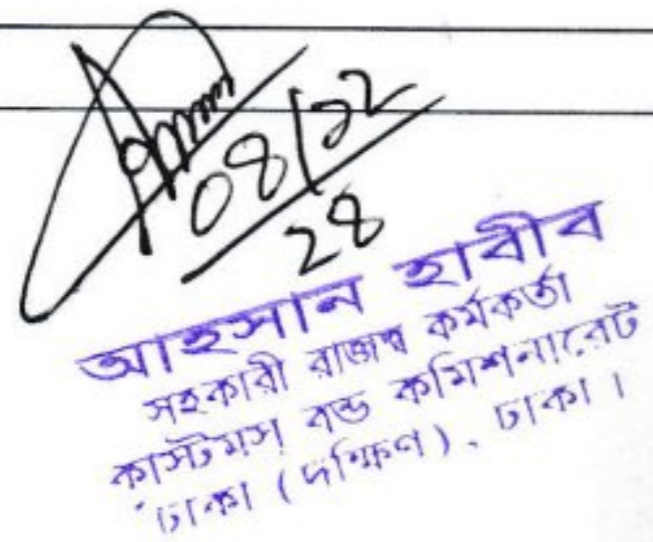 ০৪/১২
২৪
আহসান হাবীব
সহকারী রাজস্ব কর্মকর্তা
কাস্টমস বন্ড কমিশনারেট
ঢাকা (দক্ষিণ), ঢাকা।